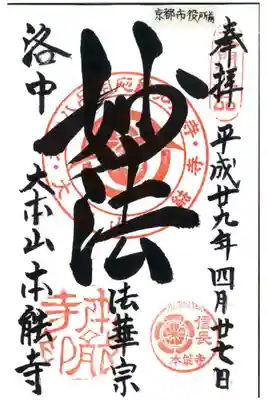 京都市役所前
奉拝 平成廿九年四月廿七日
妙法
法華宗
洛中 大本山本能寺
信長
本能寺